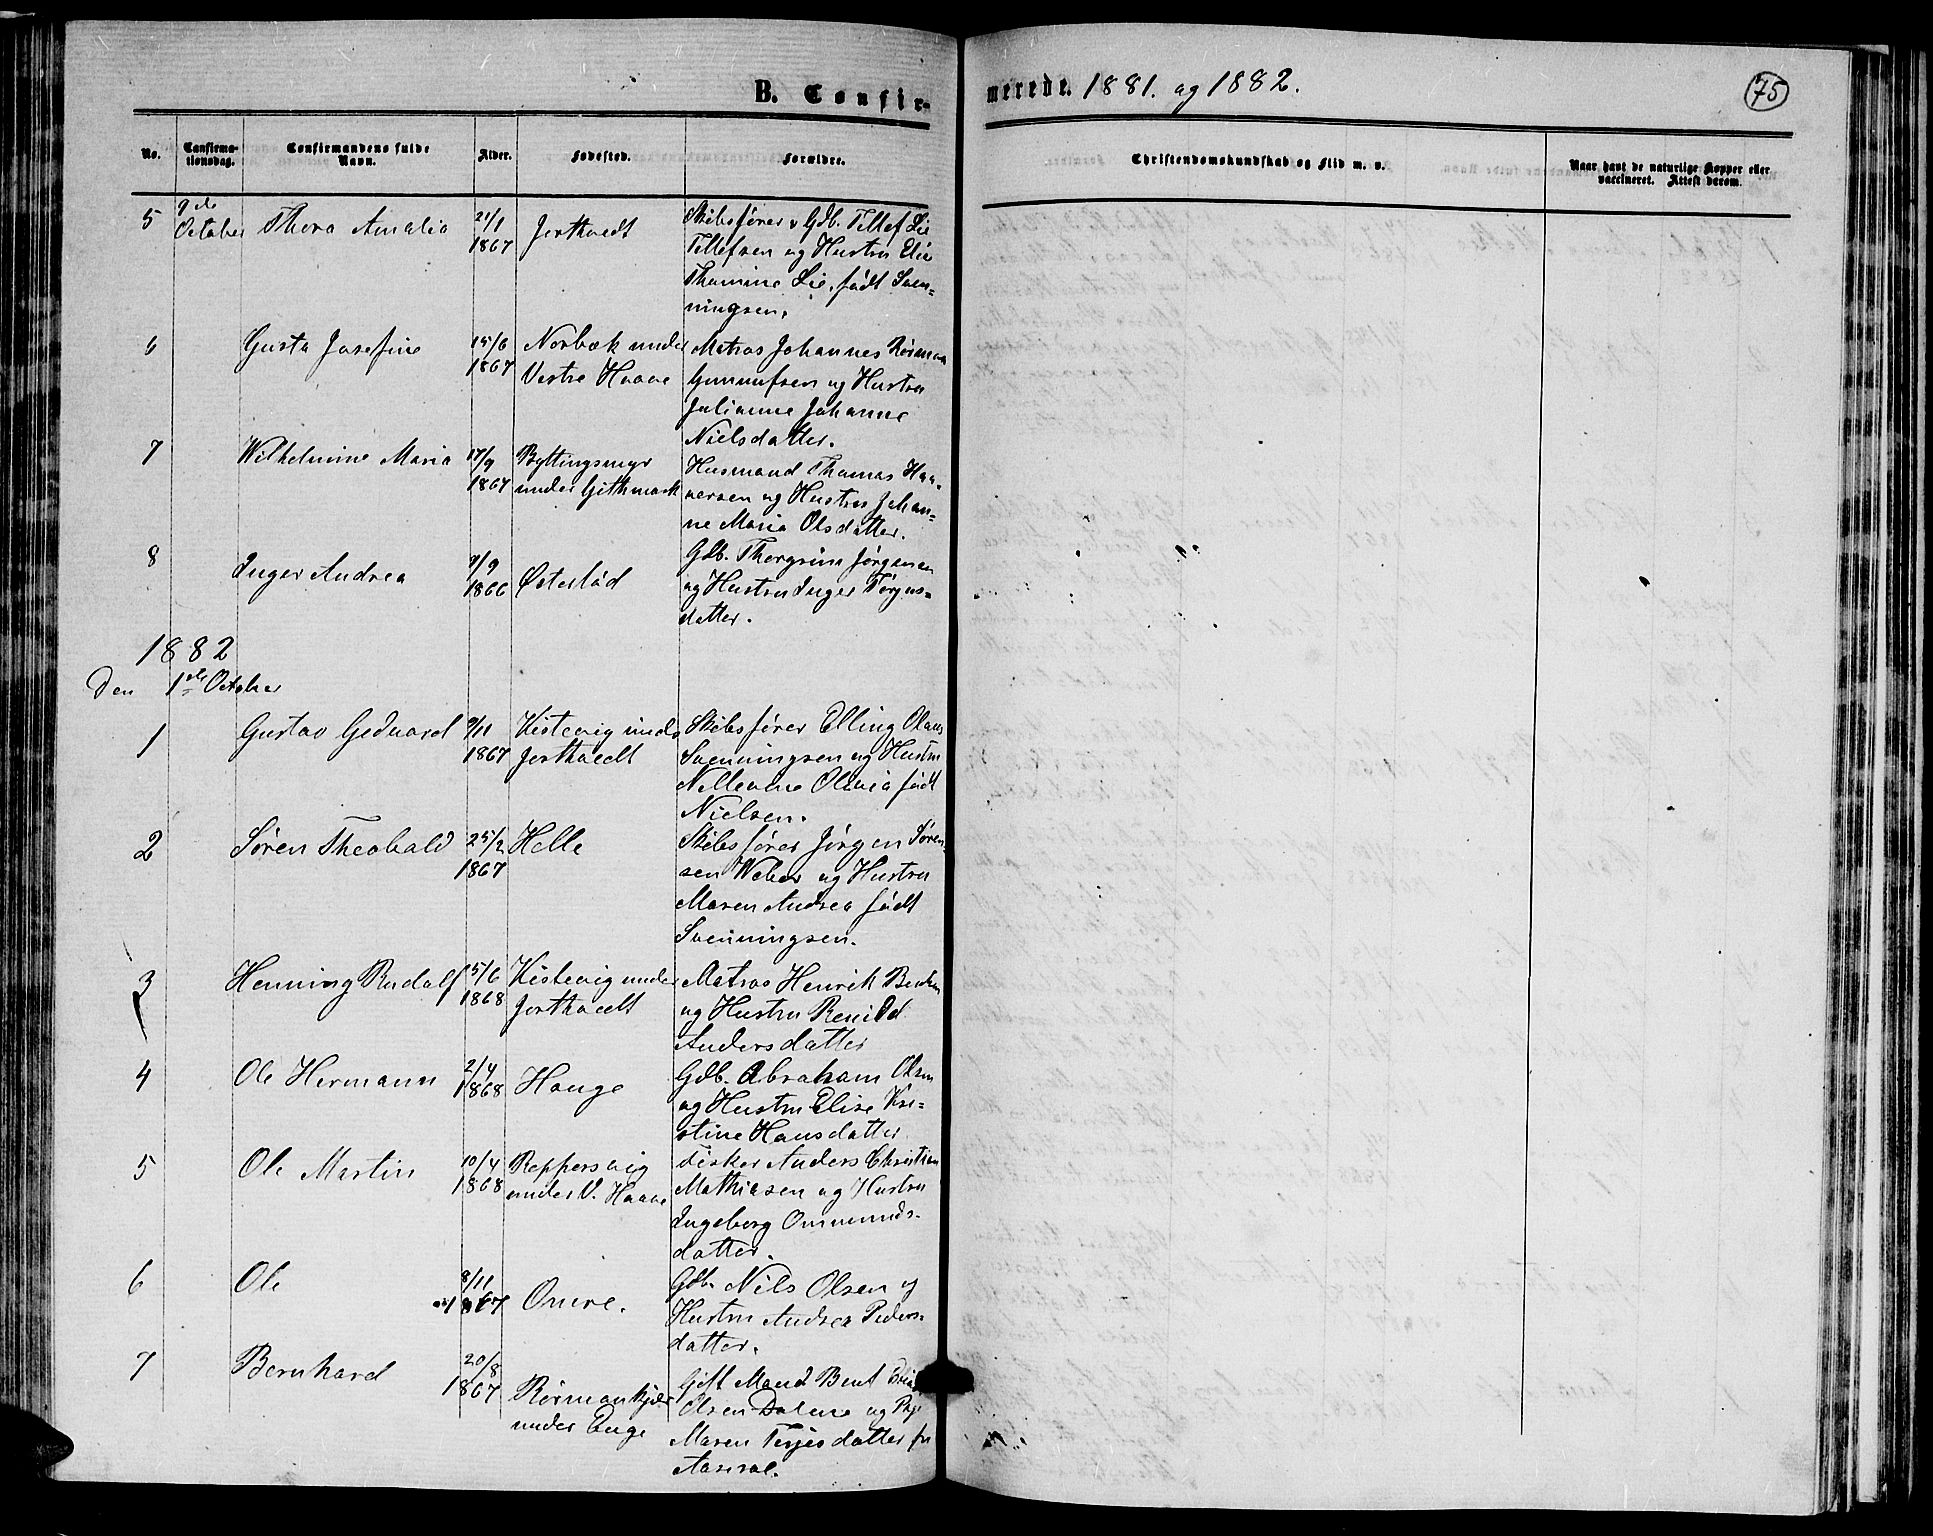 B. Confirmerede. 1881. og 1882.
75
No.
Confirmationsdag.
Confirmandens fulde Navn.
Alder.
Fødested.
Forældre.
Christendomskundskab og Flid m. v.
Naar havt de naturlige Kopper eller vaccineret. Attest derom.
5 9de October Thora Amalia 21/1 1867 Jortveedt
Skibsfører o Gdb. Tellef Lie
Tellefsen og Hustru Elie
Thomine Lie, født Sven=
ningsen.
6 Gusta Josefine 15/6 1867 Norbæk under Vestre Haave
Matros Johannes Rosman
Gunnufsen og Hustru
Julianne Johanne
Nielsdatter.
7 Wilhelmine Maria 17/9 1867 Byttingsmyr under Githmark
Husmand Thomas Haa=
versen og Hustru Johan=
ne Maria Olsdatter.
8 Inger Andrea 9/9 1866 Østerlød
Gdb. Thorgrim Jørgensen
og Hustru Inger Torjus=
datter.
1882
Den 1ste October
1 Gustav Gedvard 9/11 1867 Kistevig under Jortveedt
Skibsfører Elling Olaus
Svenningsen og Hustru
Nilleane Olivia født
Nielsen.
2 Søren Theobald 25/2 1867 Helle
Skibsfører Jørgen Søren=
sen Weber og Hustru
Maren Andrea født
Svenningsen.
3 Henning Rudolf 5/6 1868 Kistevig under Jortveedt
Matros Henrik Bentsen
og Hustru Renild
Andersdatter
4 Ole Hermann 2/4 1868 Hauge
Gdb. Abraham Olsen
og Hustru Elise Kri=
stine Hansdatter
5 Ole Martin 10/4 1868 Reppersvig under V. Haave
Fisker Anders Christian
Mathiasen og Hustru
Ingeborg Ommunds=
datter.
6 Ole 8/11 1867 Omre.
Gdb. Nils Olsen og
Hustru Andrea Peders=
datter.
7 Bernhard 20/8 1867 Rosmankjær under Enge
Gift Mand Bent Elias
Olsen Dalene og Pige
Maren Terjesdatter fra
Aaseral.